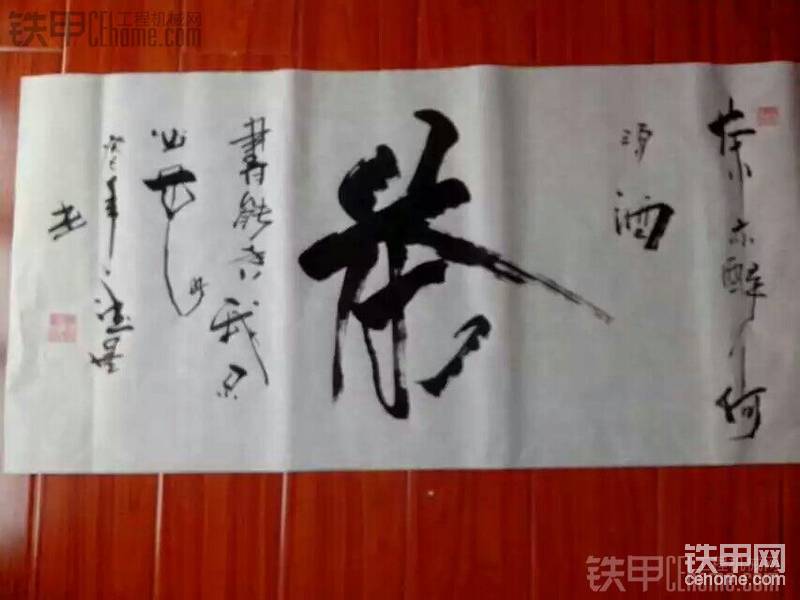 铁甲工程机械网
CEhome.com
茶亦醉人何
須酒
茶
書能香我不
必花
癸巳年
铁甲网
cehome.com